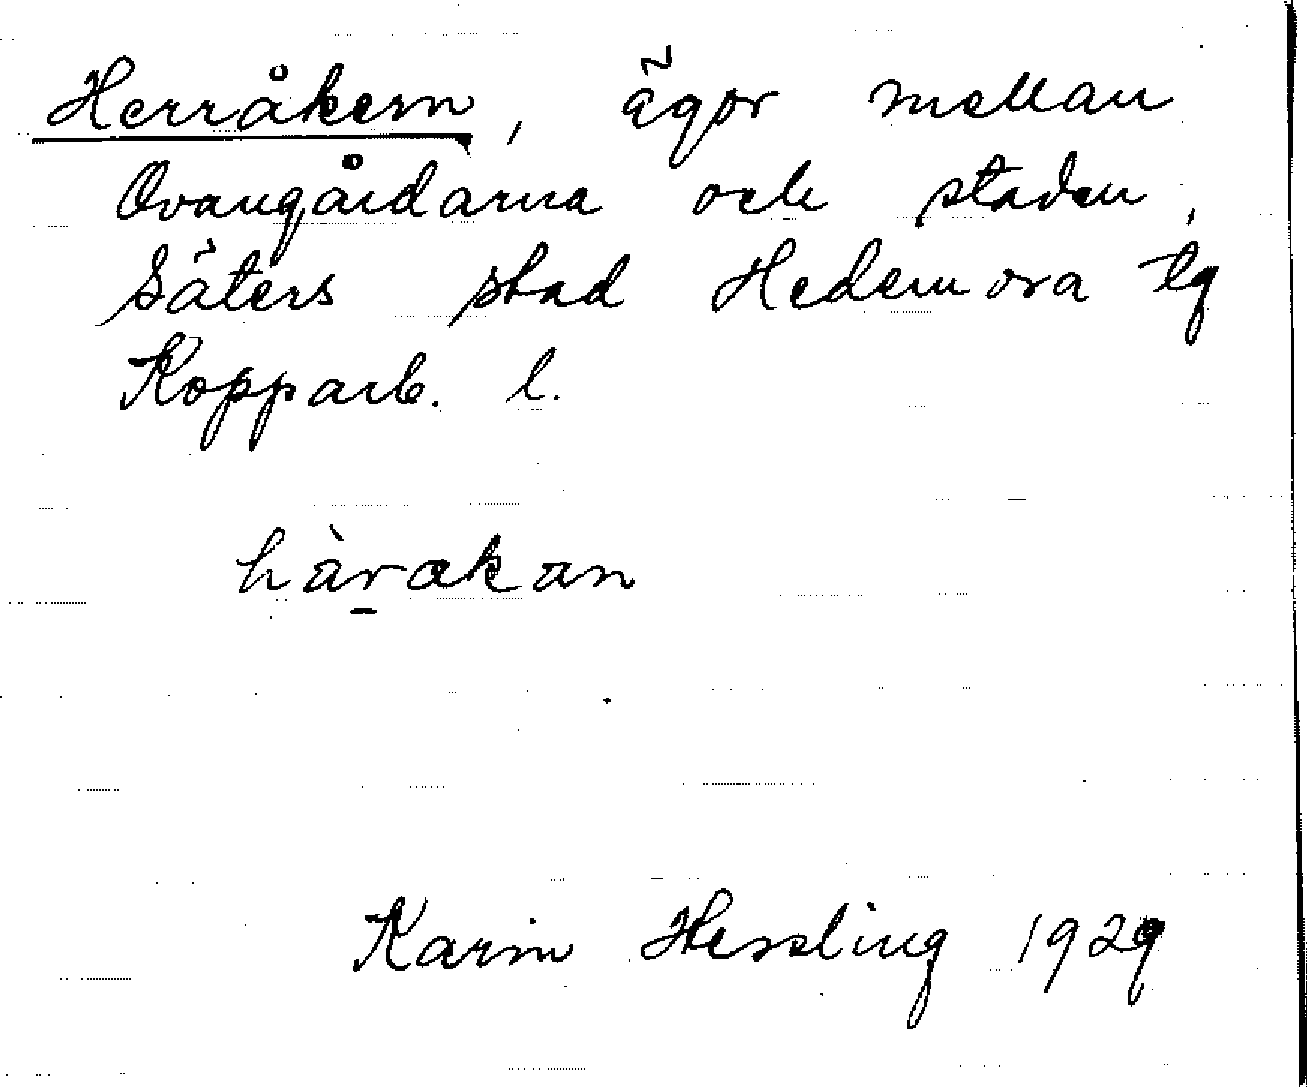 Herråkern, ägor mellan
Ovangårdarna och staden,
Säters stad Hedemora tg
Kopparb. l.
hàrakan
Karin Hessling 1929